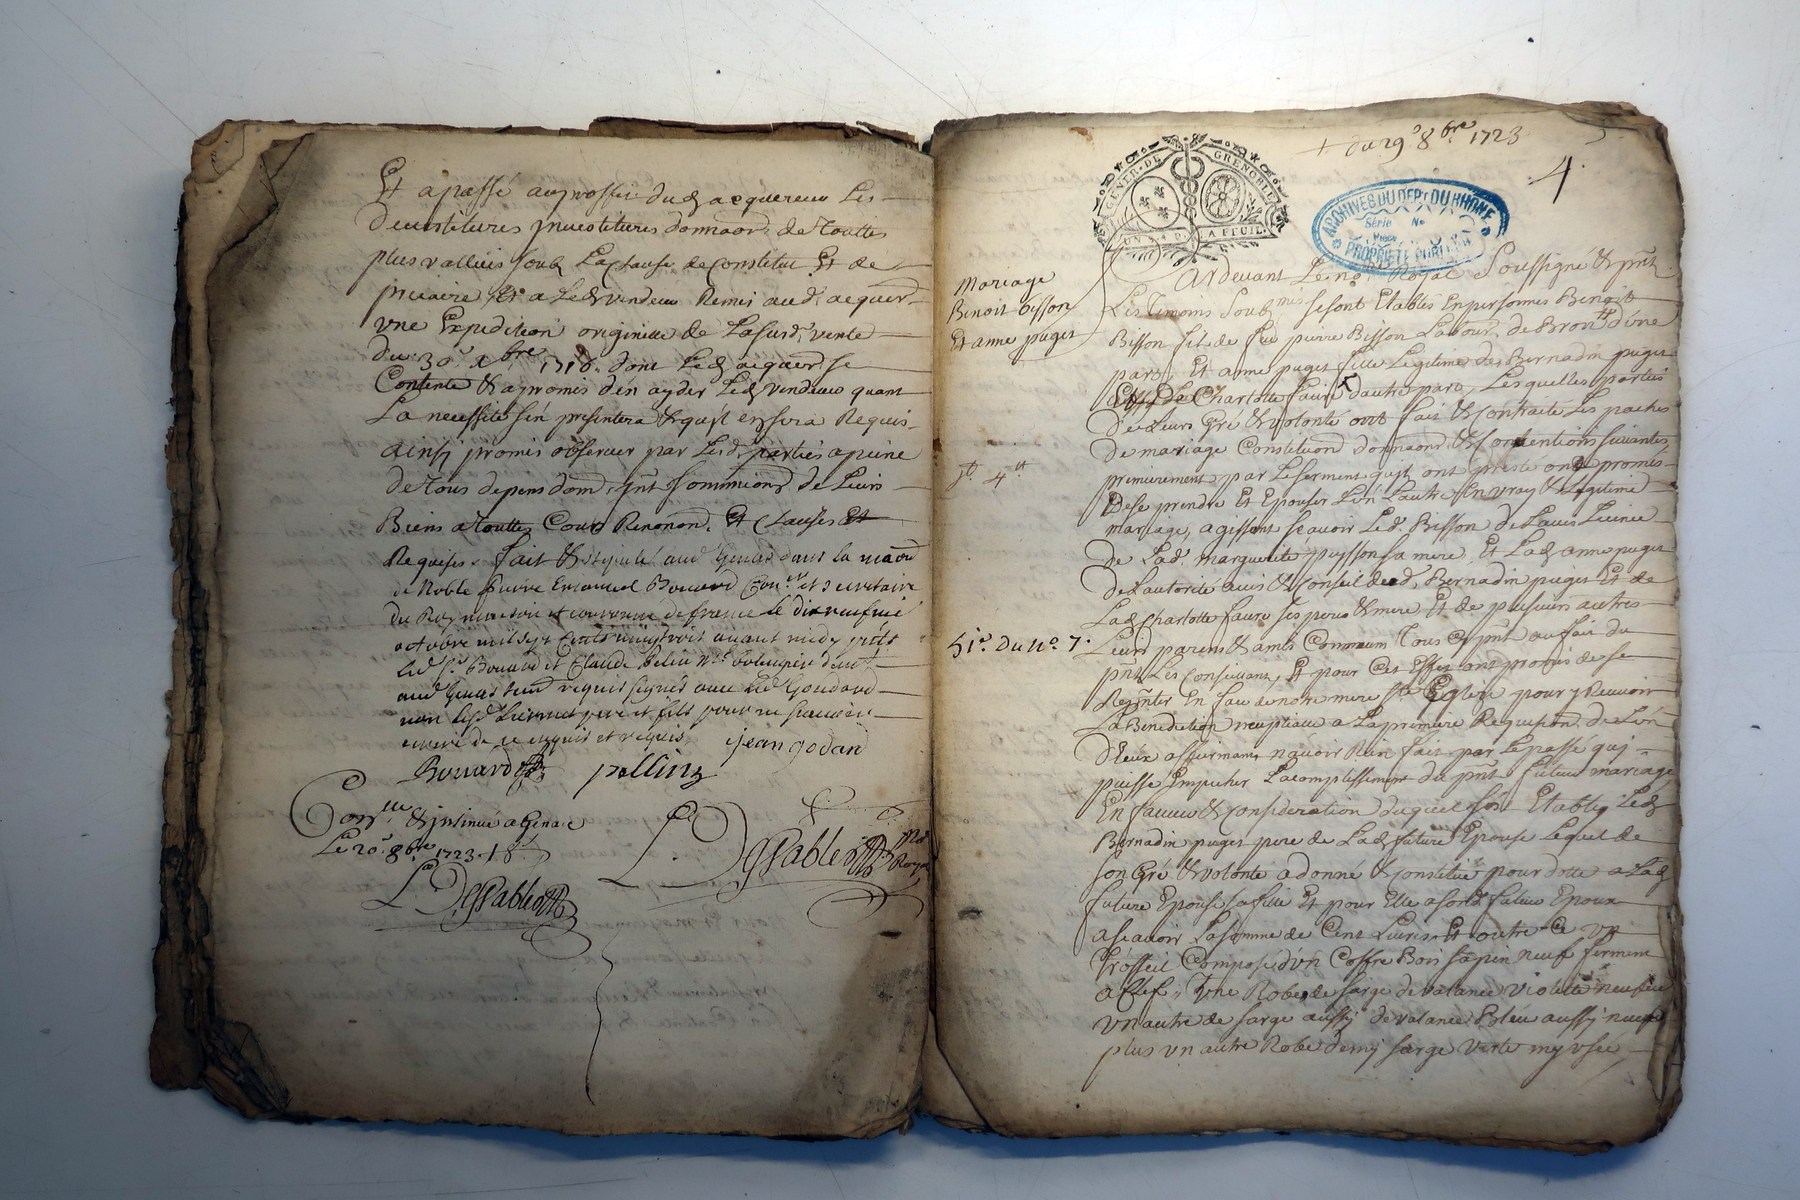 Et a passé au proffit dud acquereur Les
Devestitures Investitures donnaoñ. de Touttes
plus vallues soub La Clause de Constitut Et de
precaire, Et a Led vendeur Remis aud. acquer.
vne Expedition originelle de Lasusd. vente
Du 30.e xbre 1718. dont Led acquer. se
Contente & a promis d'en ayder Led vendeur quant
La necessité s'en presentera & qu'jl en sera Requis.
ainsy promis observer par Lesd. parties a peine
de Tous depens dom. jnt soummiond de Leurs
Biens a touttes Cours Renonond. Et Clauses Et
Requises. fait & recitté aud Genas dans la maoñ
de Noble pierre Emanuel Bouard Con.er et secretaire
du Roy maison et couronne de france le dixneufvie
octobre mil sept Cents vingt trois avant midy pñts
led. s.r Bouard et Claude
aud Genas requis signés avec led Goudard
non lesd pere et fils pour ne scavoir
escrire de ce enquis et requis jean godard
Bouard pellin
L. Desablevi Not. Royal
Con.lle & jnsinué a Genas
Le 20.e 8bre 1723.
L. Desable
+ du 29e 8bre 1723
4.
GENER. DE GRENOBLE
UN S. D. LA FEUIL.
ARCHIVES DU DEPt DU RHÔNE
Série No
Pièce
PROPRIÉTÉ PUBLIQUE
mariage
Benoit Bisson
Et anne puget
Pardevant Le no.re Royal Soussigné & pñt
Les Témoins Soub.nés se sont Etablis En personnes Benoit
Bisson fils de feu pierre Bisson Labour. de Bron d'une
part, Et anne puget fille Legitime de Bernadin puget
Et de Charlotte faure d'autre part, Lesquelles parties
De Leurs Gré & volonté ont fait & contraité Les paches
De mariage Constitution donnaond & Conventions suivantes
premierement par Le serment qu'jls ont presté ont promis
De se prendre Et Epouser L'vn L'autre En vray & Legitime
mariage, agissant scavoir Led. Bisson de L'avis Licence
De Lad. marguerite puysson sa mere, Et Lad anne puget
De L'autorité avis & Conseil desd. Bernadin puget Et de
Lad Charlotte faure ses pere & mere Et de plusieurs autres
51.e Du No. 7.
Leurs parens & amis Commun Tous Cy pñt au fair du
pñt Les Conseillant, Et pour Cet Effet ont promis de se
Repñter En face de notre mere Ste Eglise pour y Recevoir
La Benediction nuptialle a La premiere Requisond. de L'vn
D'Eux affirmant n'avoir Rien fait par Le passé qui
puisse Empecher L'acomplissement du pñt futeur mariage
En faveur & consideration duquel s'est Etably Led
Bernadin puget pere de Lad future Epouse Lequel de
son Gré & volonté a donné & constitué pour dotte a Lad
future Epouse sa fille Et pour Elle a sond futeur Epoux
ascavoir La somme de Cent Livres Et outre Ce vn
Trosseil Composé d'vn Coffre Bois sapin neuf fermant
a Clef, vne Robe de sarge de valance violette neufve
vn autre de sarge aussy de valance Bleu aussy neufve
plus vn autre Robe demy sarge verte my vsée